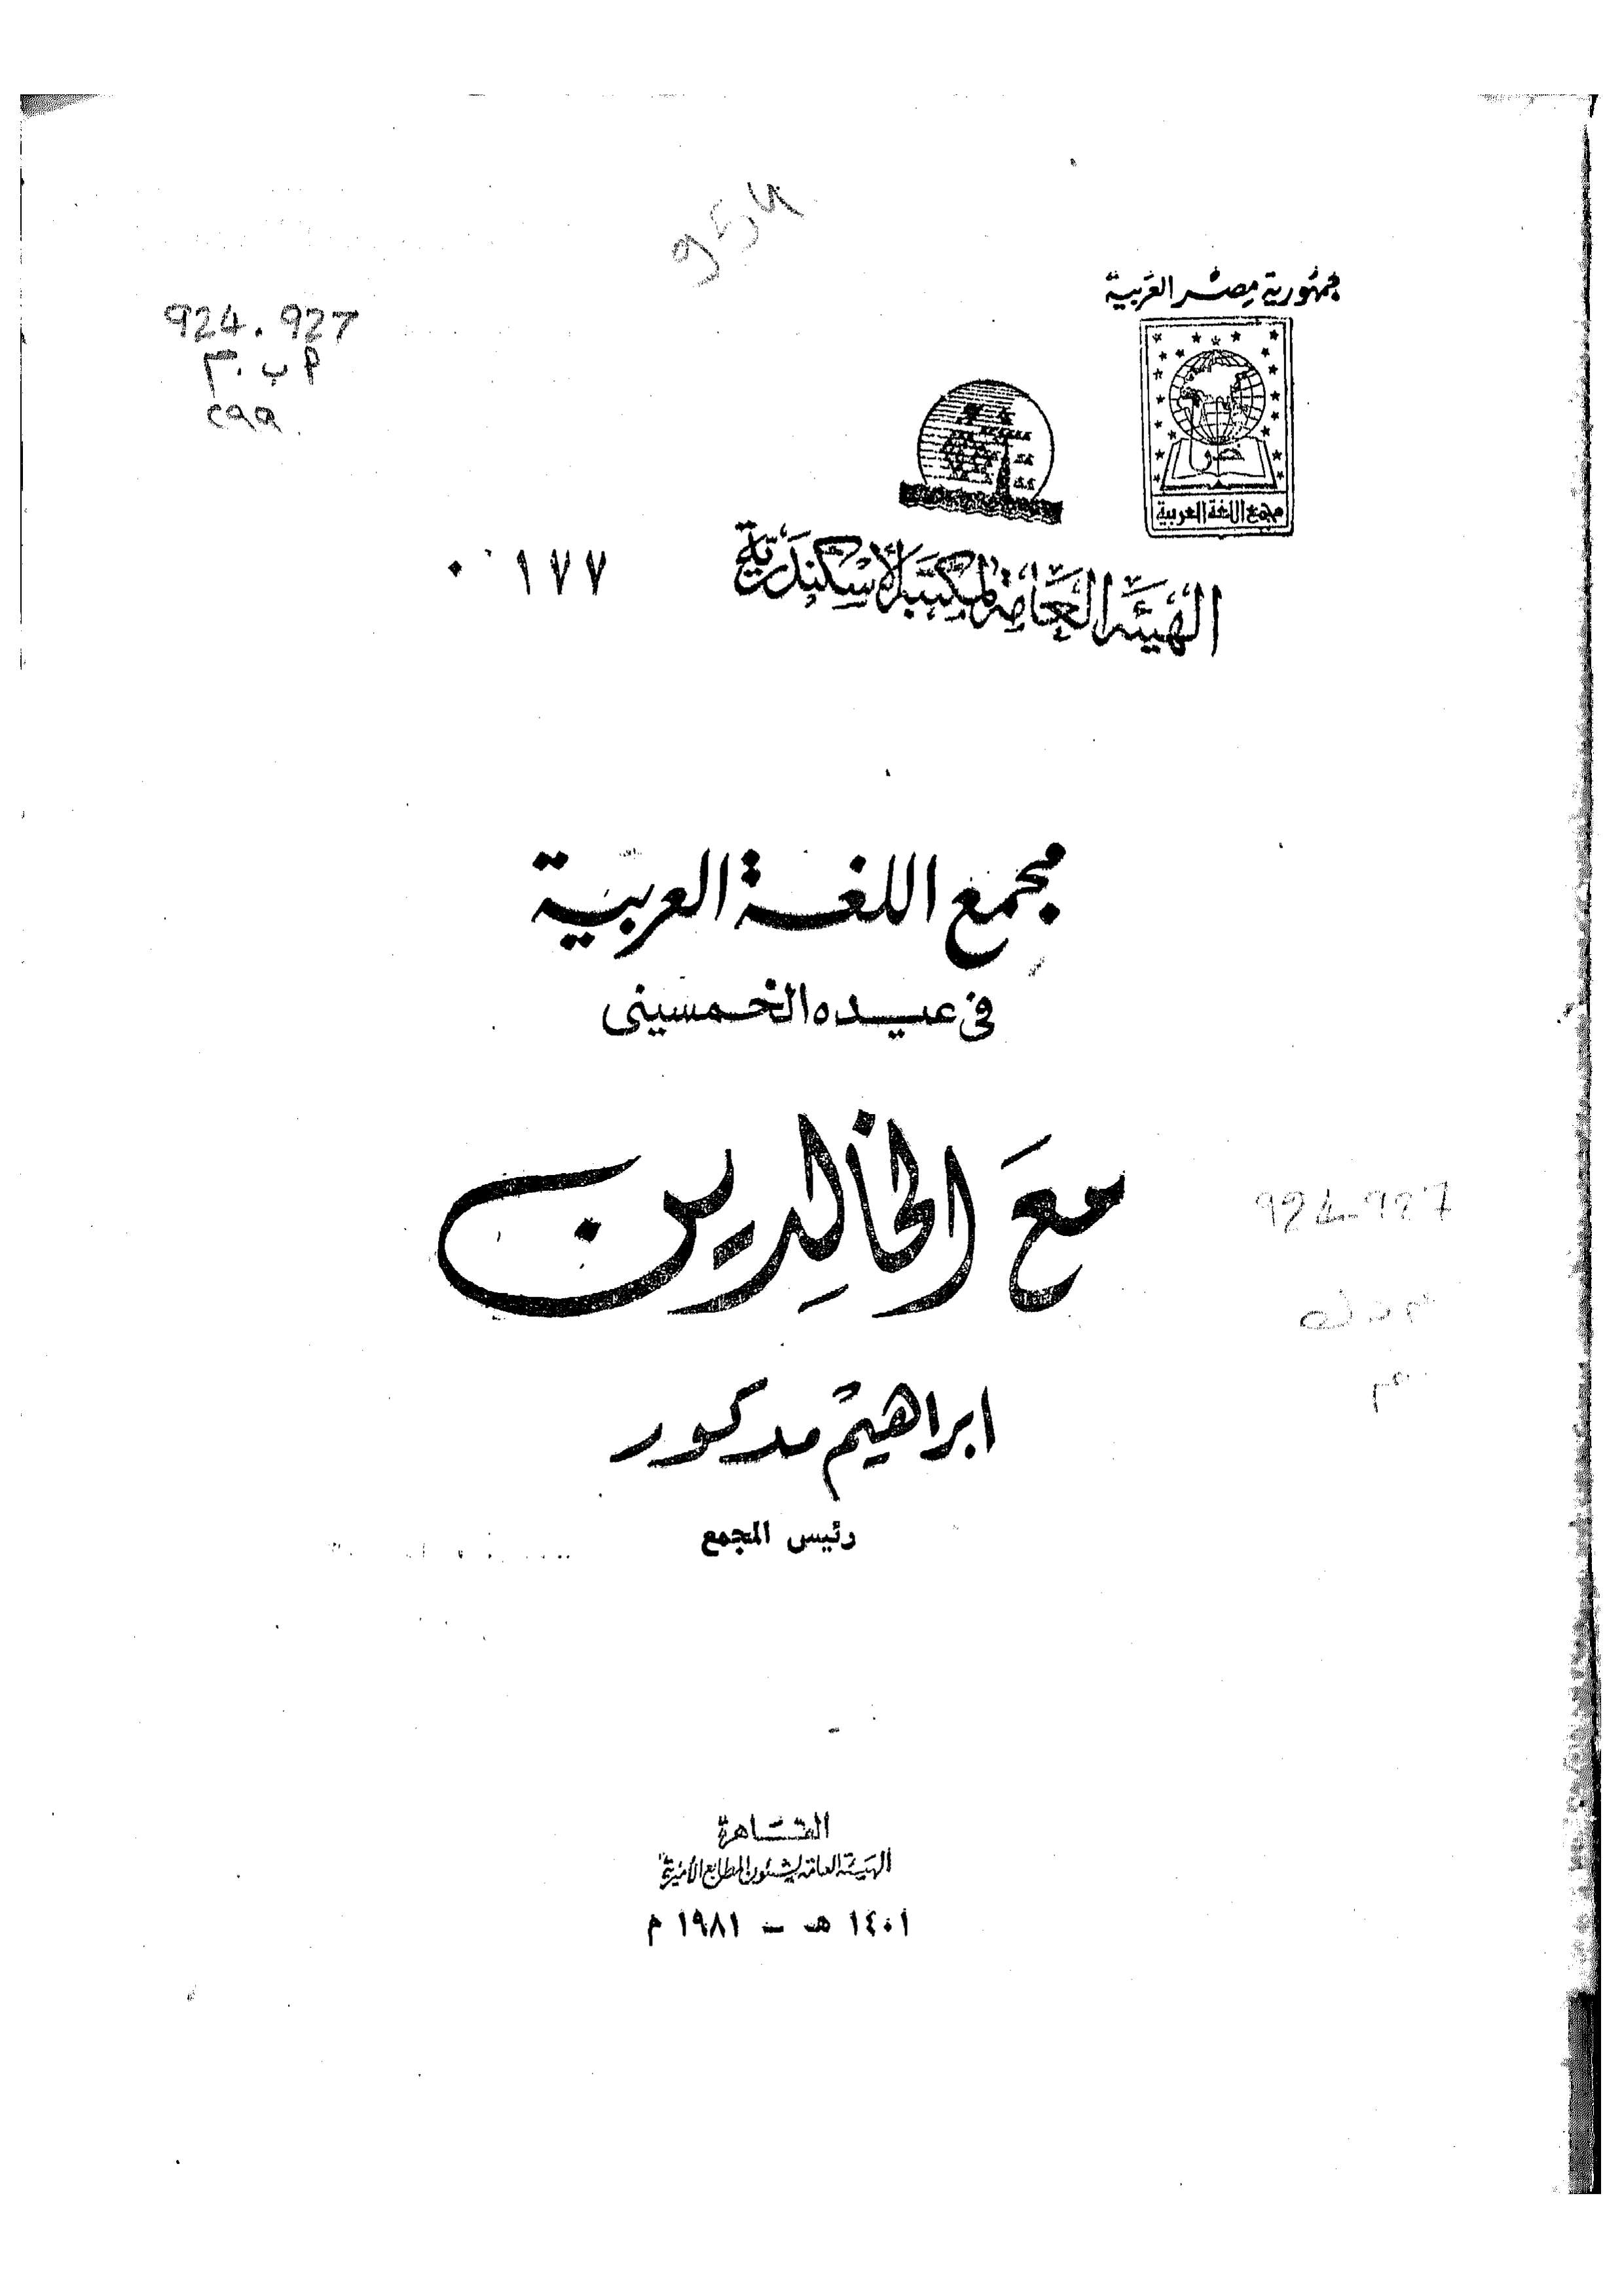 جمهورية مصر العربية
مجمع اللغة العربية
924.927
الهيئة العامة لمكتبة الإسكندرية
٠١٧٧
مجمع اللغة العربية
فى عيده الخمسينى
مع الخالدين
ابراهيم مدكور
رئيس المجمع
القاهرة
الهيئة العامة لشئون المطابع الأميرية
١٤٠١ هـ - ١٩٨١ م